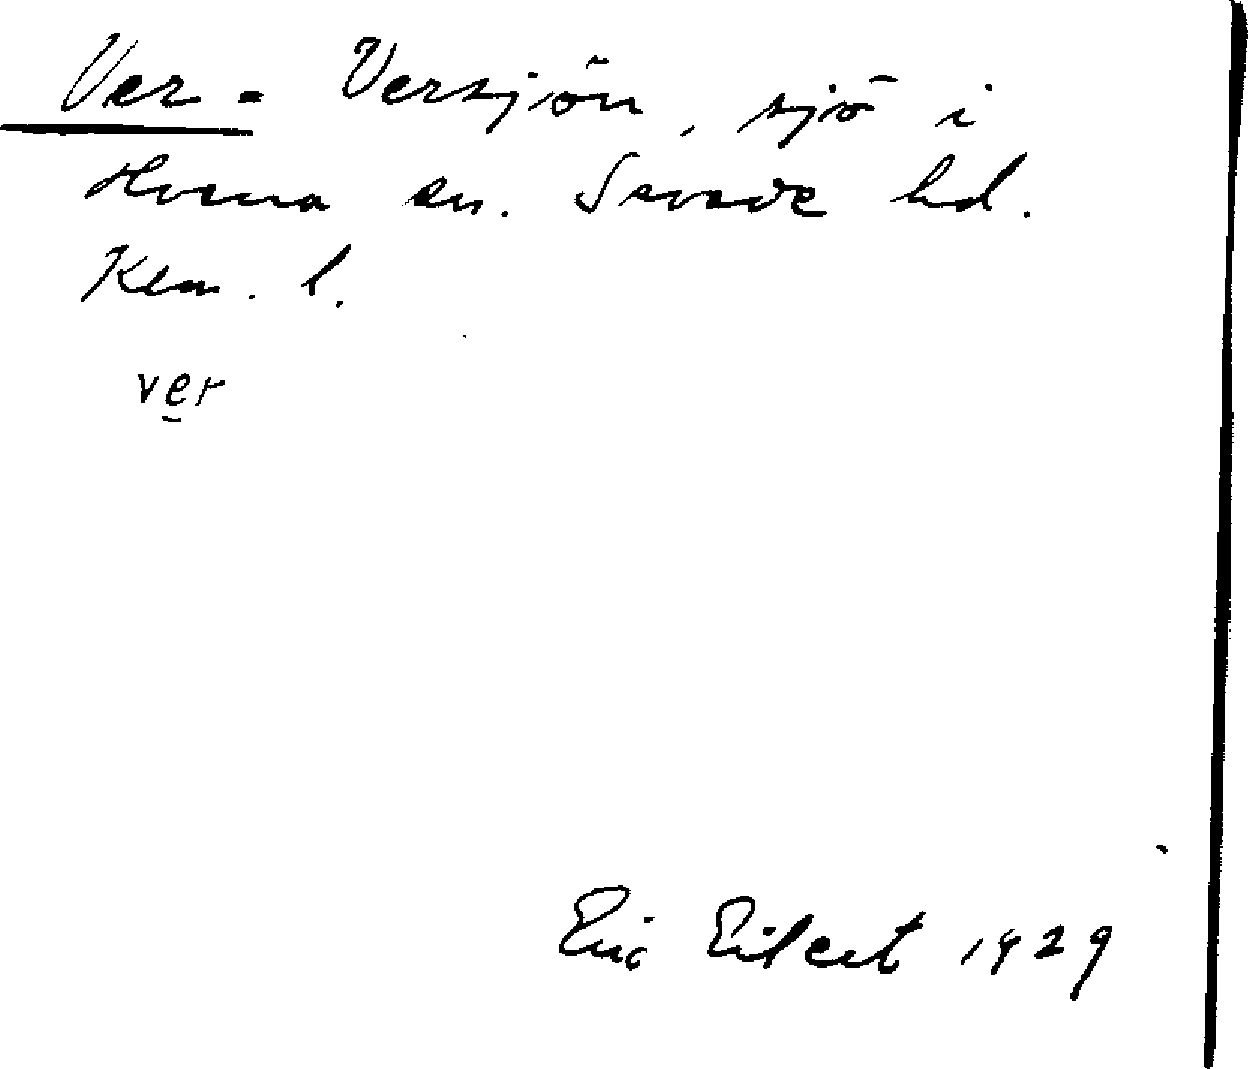 Ver = Versjön, sjö i
Horna sn. Sevede hd.
Klm. l.
ver
Eric Eilert 1929